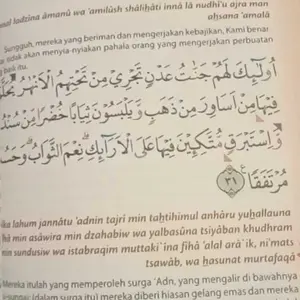 nal ladzîna âmanû wa 'amilûsh shâlihâti innâ lâ nudhî'u ajra man
ahsana 'amalâ
Sungguh, mereka yang beriman dan mengerjakan kebajikan, Kami benar
tidak akan menyia-nyiakan pahala orang yang mengerjakan perbuatan
itu.
أُولَٰئِكَ لَهُمْ جَنَّاتُ عَدْنٍ تَجْرِي مِنْ تَحْتِهِمُ الْأَنْهَارُ يُحَلَّوْ
فِيهَا مِنْ أَسَاوِرَ مِنْ ذَهَبٍ وَيَلْبَسُونَ ثِيَابًا خُضْرًا مِنْ سُنْدُ
وَإِسْتَبْرَقٍ مُتَّكِئِينَ فِيهَا عَلَى الْأَرَائِكِ نِعْمَ الثَّوَابُ وَحَسُ
مُرْتَفَقًا ٣١
ika lahum jannâtu 'adnin tajri min tahtihimul anhâru yuhallauna
hâ min asâwira min dzahabiw wa yalbasûna tsiyâban khudhram
min sundusiw wa istabraqim muttaki'ina fihâ 'alal arâ'ik, ni'mats
tsawâb, wa hasunat murtafaqâ
Mereka itulah yang memperoleh surga 'Adn, yang mengalir di bawahnya
(dalam surga itu) mereka diberi hiasan gelang emas dan mereka